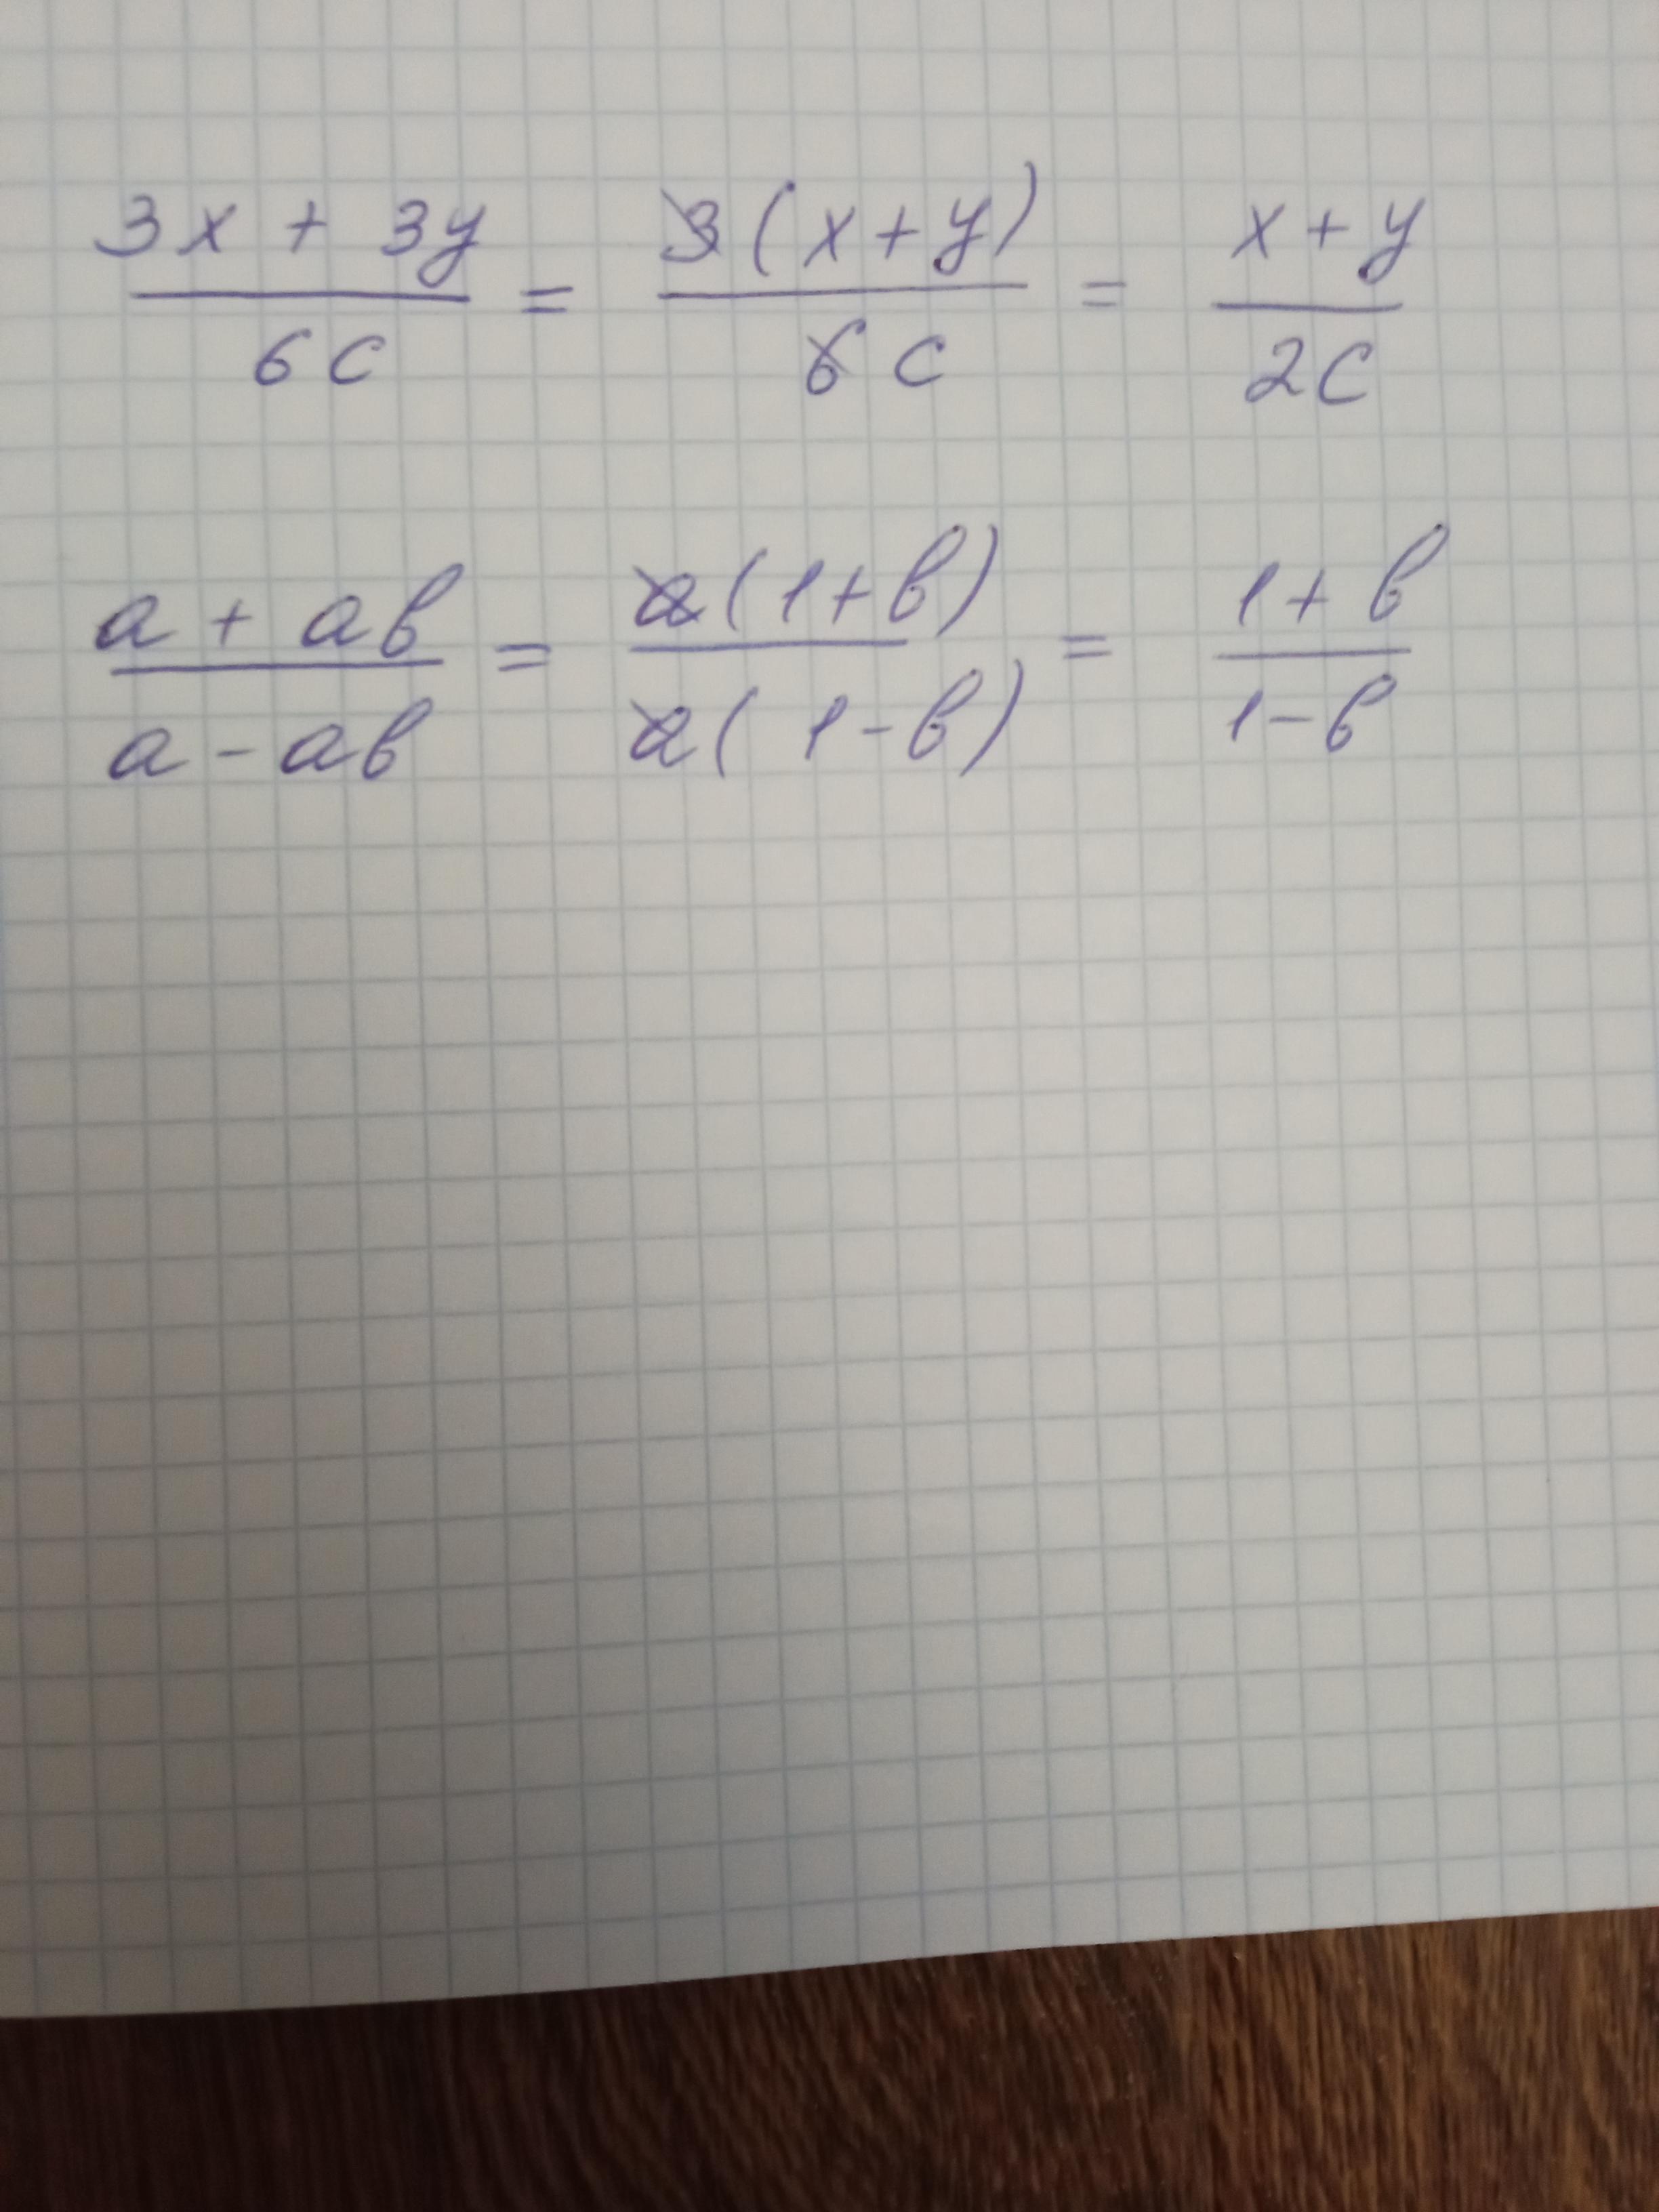 3x + 3y / 6c = 3(x+y) / 6c = x+y / 2c
a + ab / a - ab = a(1+b) / a(1-b) = 1+b / 1-b